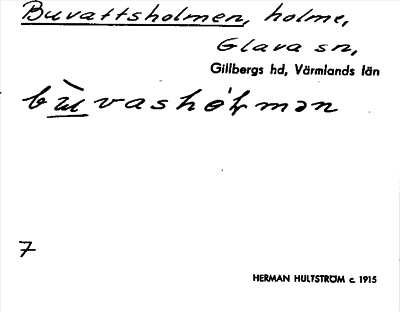 Buvattsholmen, holme,
Glava sn,
Gillbergs hd, Värmlands län
7
HERMAN HULTSTRÖM c. 1915